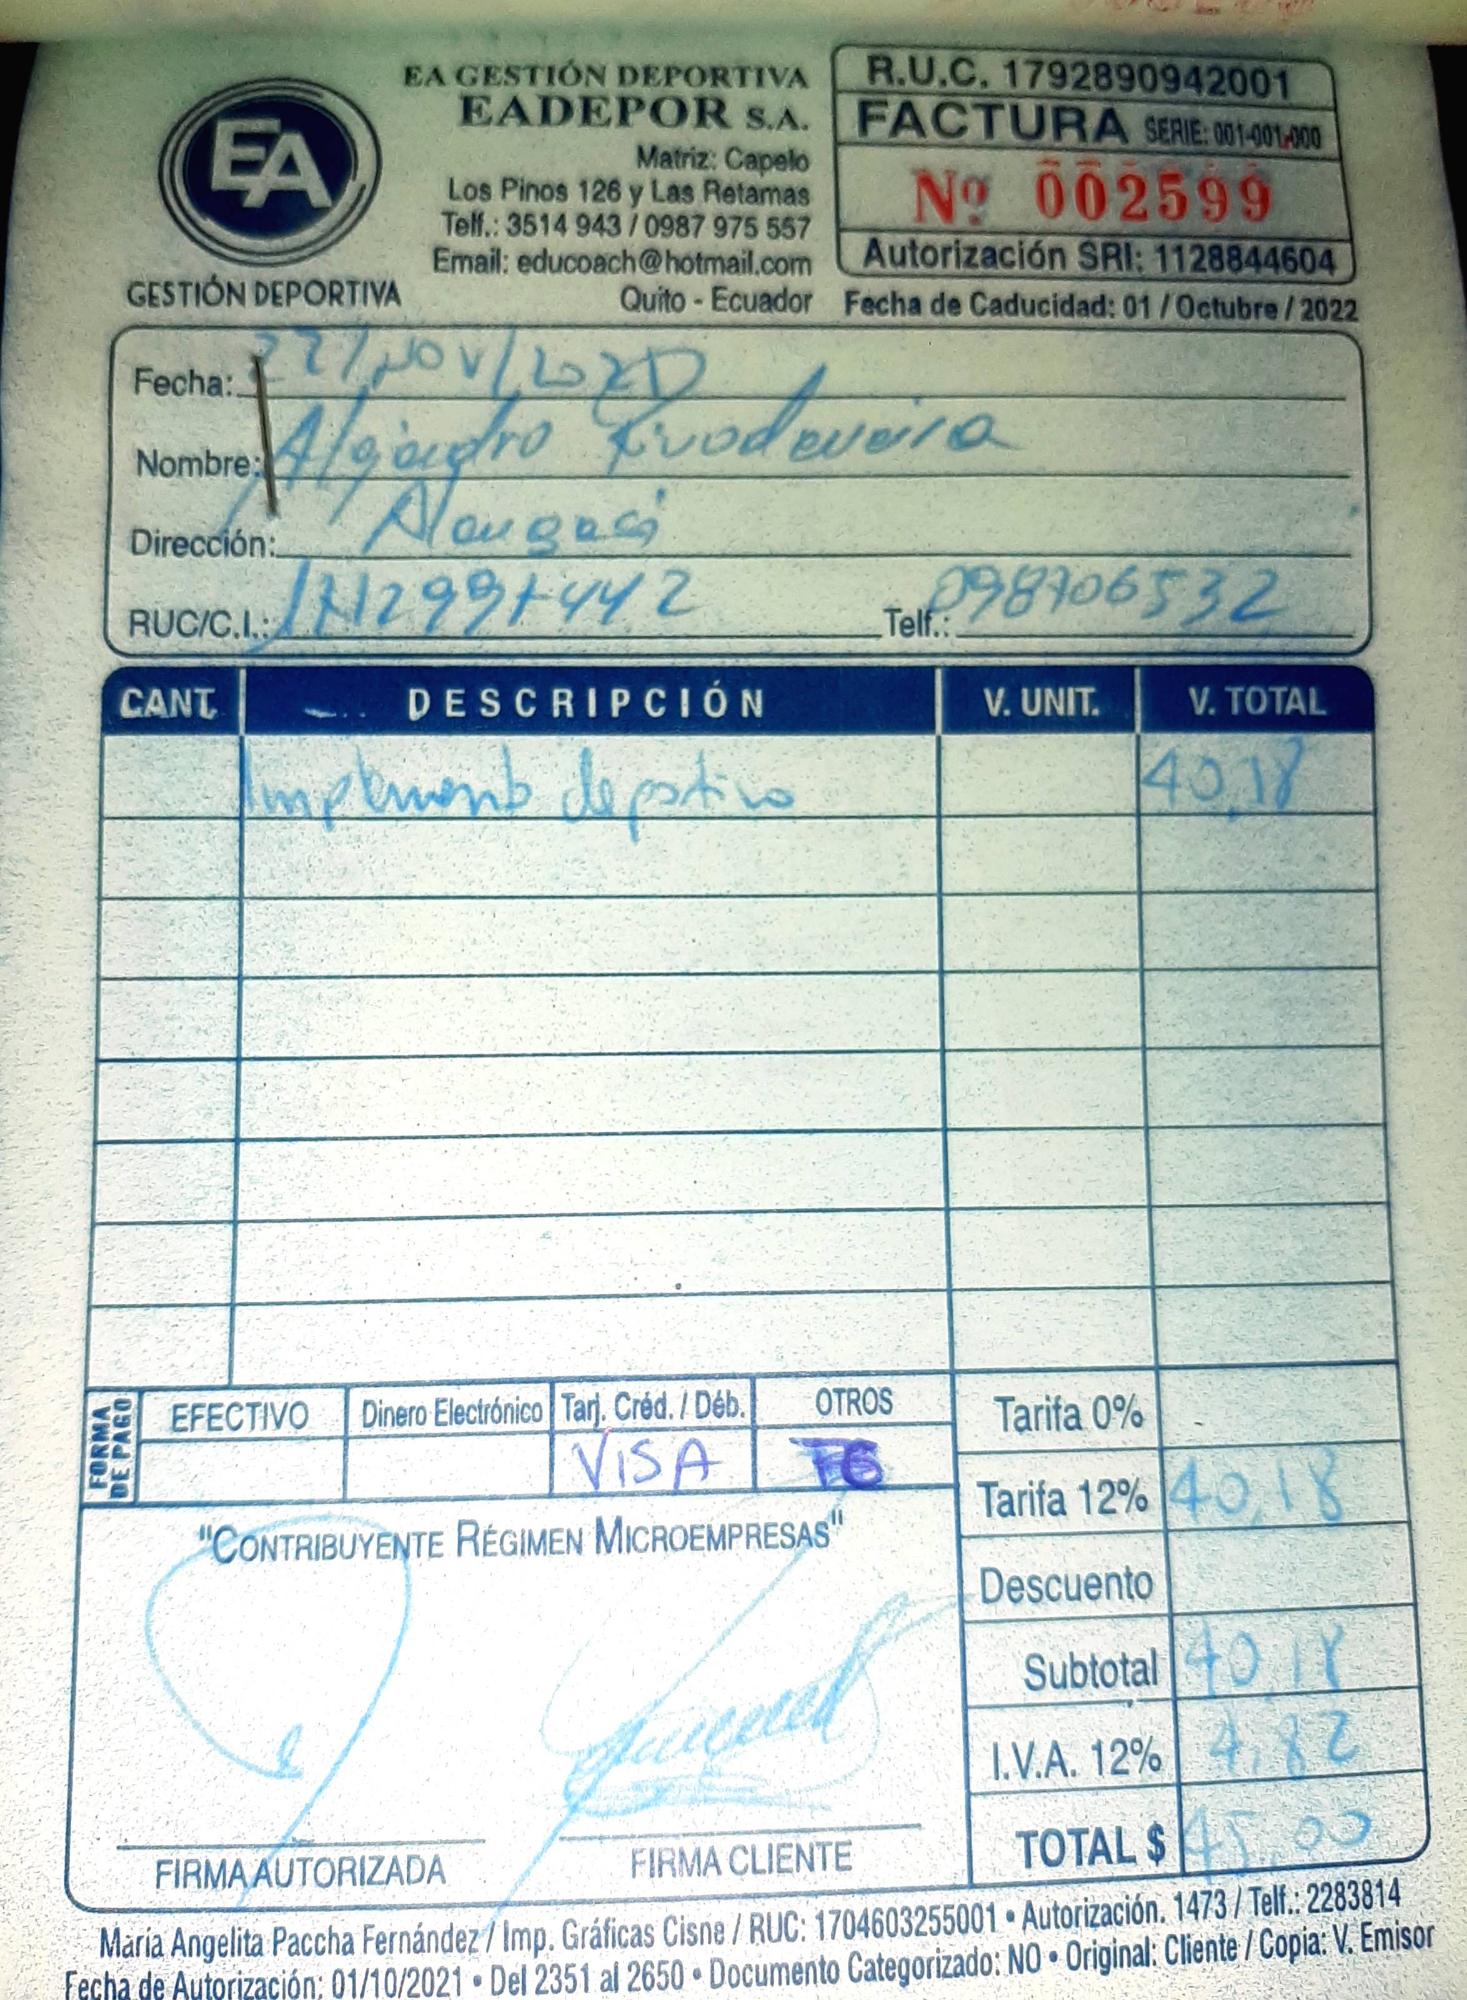 EA
GESTIÓN DEPORTIVA
EA GESTIÓN DEPORTIVA
EADEPOR S.A.
Matriz: Capelo
Los Pinos 126 y Las Retamas
Telf.: 3514 943 / 0987 975 557
Email: educoach@hotmail.com
Quito - Ecuador
R.U.C. 1792890942001
FACTURA SERIE: 001-001-000
Nº 002599
Autorización SRI: 1128844604
Fecha de Caducidad: 01 / Octubre / 2022
Fecha: 22/NOV/2021
Nombre: Alejandro
Dirección: Alangasí
RUC/C.I.: 1712997442 Telf.: 098706532
CANT. DESCRIPCIÓN V. UNIT. V. TOTAL
Implemento deportivo 40,18
FORMA DE PAGO
EFECTIVO Dinero Electrónico Tarj. Créd. / Déb. OTROS
VISA
Tarifa 0% -
Tarifa 12% 40,18
Descuento
Subtotal 40,18
I.V.A. 12% 4,82
TOTAL $ 45,00
"CONTRIBUYENTE RÉGIMEN MICROEMPRESAS"
FIRMA AUTORIZADA FIRMA CLIENTE
María Angelita Paccha Fernández / Imp. Gráficas Cisne / RUC: 1704603255001 • Autorización. 1473 / Telf.: 2283814
Fecha de Autorización: 01/10/2021 • Del 2351 al 2650 • Documento Categorizado: NO • Original: Cliente / Copia: V. Emisor